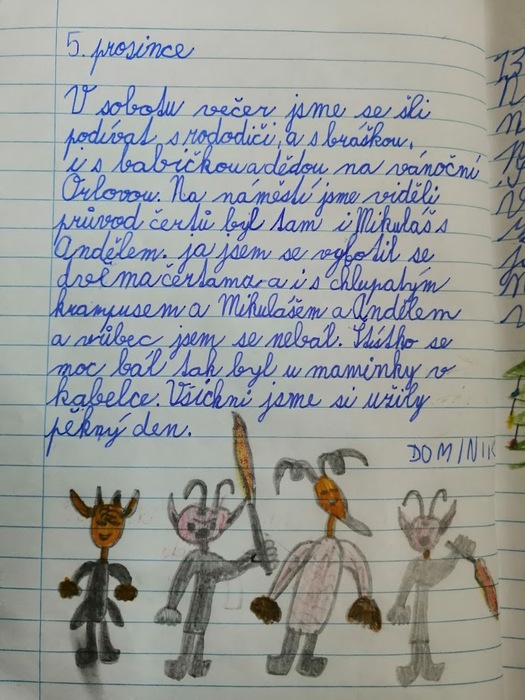 5. prosince
V sobotu večer jsme se šli
podívat s rododiči, a s bráškou,
i s babičkou a dědou na vánoční
Orlovou. Na náměstí jsme viděli
průvod čertů byl tam i Mikuláš s
Andělem. ja jsem se vyfotil se
dvěma čertama a i s chlupatým
krampusem a Mikulášem a Andělem
a vůbec jsem se nebál. Štístko se
moc bál tak byl u maminky v
kabelce. Všichni jsme si užily
pěkný den.
DOMINIK